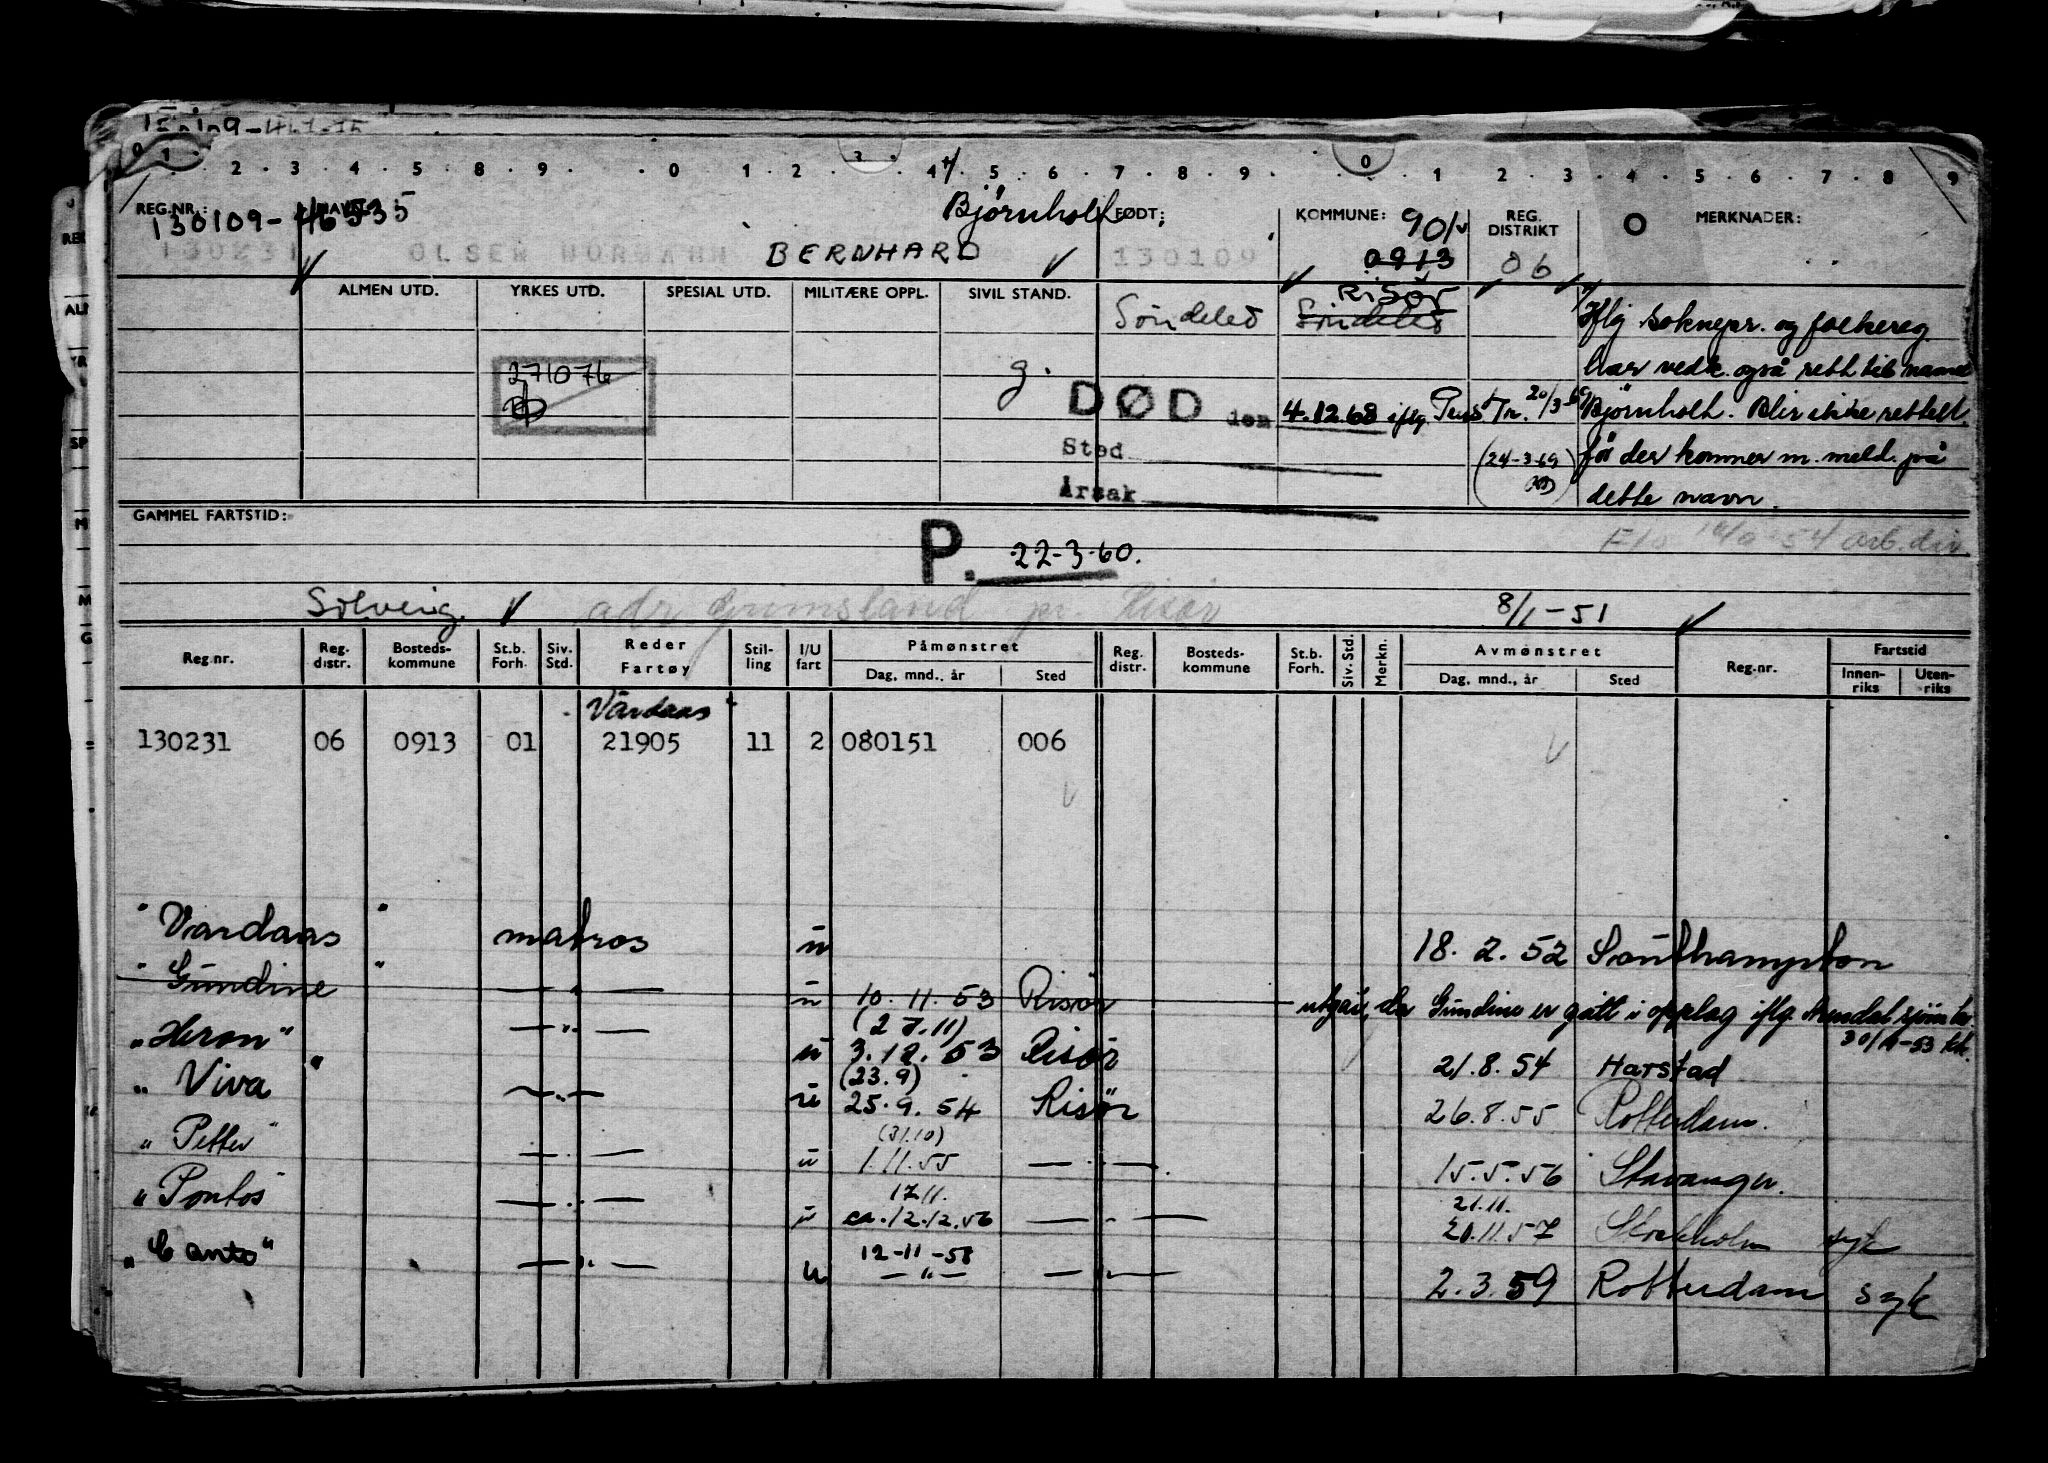 1 . 2 . 3 . 4 . 5 . 8 . 9 . 0 . 1 . 2 . 3 . 4 . 5 . 6 . 7 . 8 . 9 . 0 . 1 . 2 . 3 . 4 . 5 . 6 . 7 . 8 . 9
REG.NR.: NAVN: Bjørnholt FØDT: KOMMUNE: 901 REG. DISTRIKT O MERKNADER:
130109-46535
130231 OLSEN NORMANN BERNHARD 130109 0913 06
ALMEN UTD. YRKES UTD. SPESIAL UTD. MILITÆRE OPPL. SIVIL STAND. Søndeled Risør Søndeled
Iflg soknepr. og folkereg.
271076 g. har vedk. også rett til navnet
DØD den 4.12.68 iflg Pens Tr. 20/3-69 Bjørnholt. Blir ikke rettet
Sted (24-3-69 før der kommer m. meld. på
Årsak dette navn.
GAMMEL FARTSTID:
54 arb.dir.
P. 22-3-60.
Solveig adr Grimsland pr. Risør 8/1-51
Reg.nr. Reg. distr. Bosteds- kommune St.b. Forh. Siv. Std. Reder Fartøy Stil- ling I/U fart Påmønstret Dag, mnd., år Sted Reg. distr. Bosteds- kommune St.b. Forh. Siv. Std. Merkn. Avmønstret Dag, mnd., år Sted Reg.nr. Fartstid Innen- riks Uten- riks
"Vardaas"
130231 06 0913 01 21905 11 2 080151 006
"Vardaas" matros u 18. 2. 52 Southampton
"Gundine" — " — u 10. 11. 53 Risør — utgår, da Gundine er gått i opplag iflg Arendal sjømk.
30/11-53
"Heron" — " — u (27.11) 3.12.53 Risør 21.8.54 Harstad
"Viva" — " — u (23.9) 25.9.54 Risør 26.8.55 Rotterdam.
"Petter" — " — u (31.10) 1.11.55 — " — 15.5.56 Stavanger.
"Pontos" — " — u 17.11. ca. 12.12.56 — " — 21.11. 20.11.57 Stockholm syk
"Canto" — " — u 12-11-58 — " — — " — 2.3.59 Rotterdam syk